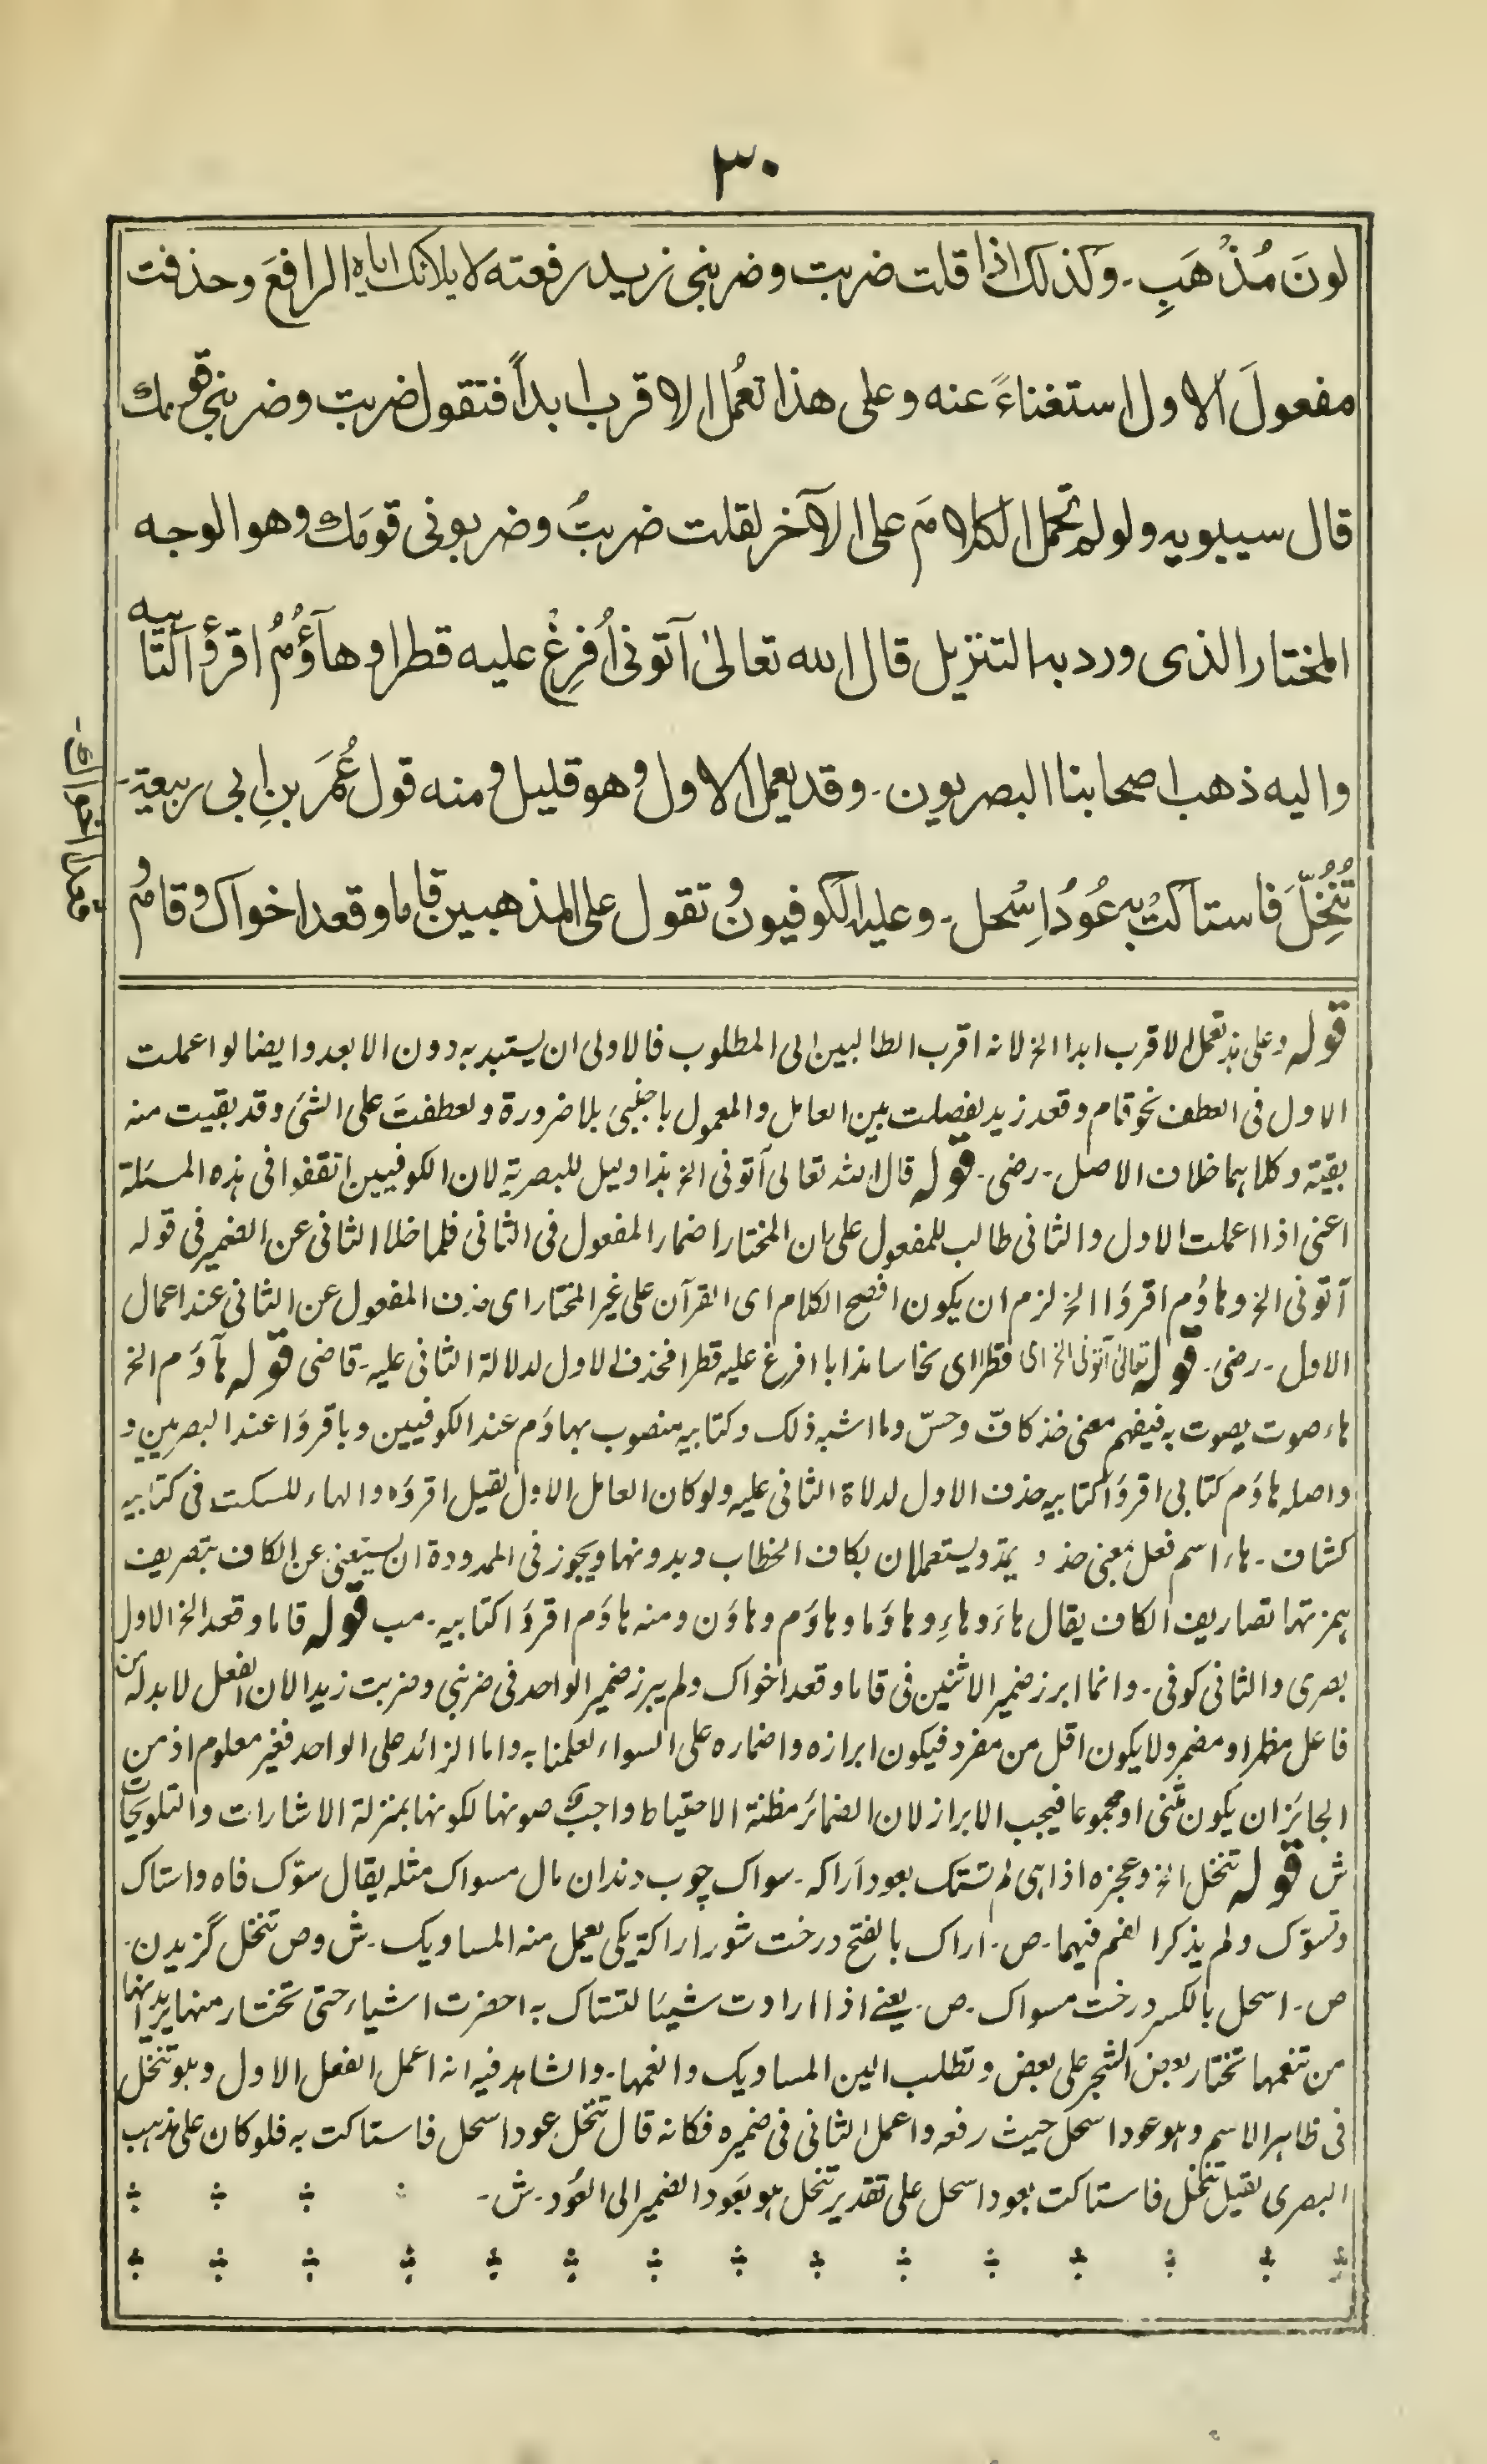 ٣٠
لونَ مُذْهَبِ۔ وكذلك اذا قلت ضربت وضربنى زيد رفعته لايلائك اياه الرافعَ وحذفت
مفعولَ الاول استغناءً عنه وعلى هذا تعُمل الاقرب ابداً فتقول ضربت وضربنى قومك
قال سيبويه ولو لم تحمل الكلامَ على الآخر لقلت ضربتُ وضربونى قومَك وهو الوجه
المختار الذى ورد به التنزيل قال الله تعالىٰ آتونى اُفرِغْ عليه قطرا وهآؤُمُ اقرؤُا كتابيه
واليه ذهب اصحابنا البصريون۔ وقد يعمل الاول وهو قليل ومنه قول عُمَرَ بنِ ابى ربيعة۔
تُنُخِّلَ فاستاكتْ به عُوْدُ اِسْحل۔ وعليه الكوفيون وتقول على المذهبين قاما وقعد اخواك وقام
قوله وعلى هذا تعمل الاقرب ابدا الخ لانه اقرب الطالبين الى المطلوب فالاولى ان يستبد به دون الابعد وايضا لو اعملت
الاول فى العطف نحو قام وقعد زيد لفصلت بين العامل والمعمول باجنبى بلا ضرورة ولعطفتَ على الشئ وقد بقيت منه
بقية وكلاهما خلاف الاصل۔ رضى۔ قوله قال الله تعالى آتونى الخ هذا دليل للبصرية لان الكوفيين اتفقوا فى هذه المسئلة
اعنى اذا اعملت الاول والثانى طالب للمفعول على ان المختار اضمار المفعول فى الثانى فلما خلا الثانى عن الضمير فى قوله
آتونى الخ وهاؤم اقرؤا الخ لزم ان يكون افصح الكلام اى القرآن على غير المختار اى حذف المفعول عن الثانى عند اعمال
الاول۔ رضى۔ قوله تعالى آتونى الخ اى قطرا اى نحاسا مذابا افرغ عليه قطرا فحذف الاول لدلالة الثانى عليه۔ قاضى قوله هآؤم الخ
هاء صوت يصوت به فيفهم معنى خذ كافّ وحسّ وما اشبه ذلك وكتابيه منصوب بهاؤم عند الكوفيين وباقرؤا عند البصريين و
واصله هاؤم كتابى اقرؤا كتابيه حذف الاول لدلاة الثانى عليه ولو كان العامل الاول لقيل اقرؤه والهاء للسكت فى كتابيه
كشاف۔ هاء اسم فعل بمعنى خذ و يمدّ ويستعملان بكاف الخطاب وبدونها ويجوز فى الممدودة ان يستغنى عن الكاف بتصريف
همزتها تصاريف الكاف يقال هاءَ وهاءِ وهاؤما وهاؤم وهاؤن ومنه هاؤم اقرؤا كتابيه۔ مب قوله قاما وقعد الخ الاول
بصرى والثانى كوفى۔ وانما ابرز ضمير الاثنين فى قاما وقعد اخواك ولم يبرز ضمير الواحد فى ضربنى وضربت زيدا لان الفعل لابد له من
فاعل مظهر او مضمر ولا يكون اقل من مفرد فيكون ابرازه واضماره على السواء لعلمنا به واما الزائد على الواحد فغير معلوم اذ من
الجائز ان يكون مثنى او مجموعا فيجب الابراز لان الضمائر مظنة الاحتياط واجبٌ صونها لكونها بمنزلة الاشارات والتلويحات
ش قوله تنخل الخ وعجزه اذا هى لم تستك بعود اراكه۔ سواك چوب دندان مال مسواك مثله يقال سوّك فاه واستاك
وتسوّك ولم يذكر الفم فيهما۔ ص۔ اراك بالفتح درخت شور اراكة يكى يعمل منه المساويك۔ ش وص تنخل گزيدن۔
ص۔ اسحل بالكسر درخت مسواك۔ ص۔ يعنے اذا ارادت شيئا لتستاك به احضرت اشياء حتى تختار منها يريد انها
من تنعمها تختار بعض الشجر على بعض وتطلب الين المساويك وانعمها۔ والشاهد فيه انه اعمل الفعل الاول وهو تنخل
فى ظاهر الاسم وهو عود اسحل حيث رفعه واعمل الثانى فى ضميره فكانه قال تنخل عود اسحل فاستاكت به فلو كان على مذهب
البصرى لقيل تنخل فاستاكت بعود اسحل على تقدير تنخل هو بعَود الضمير الى العُود۔ ش۔